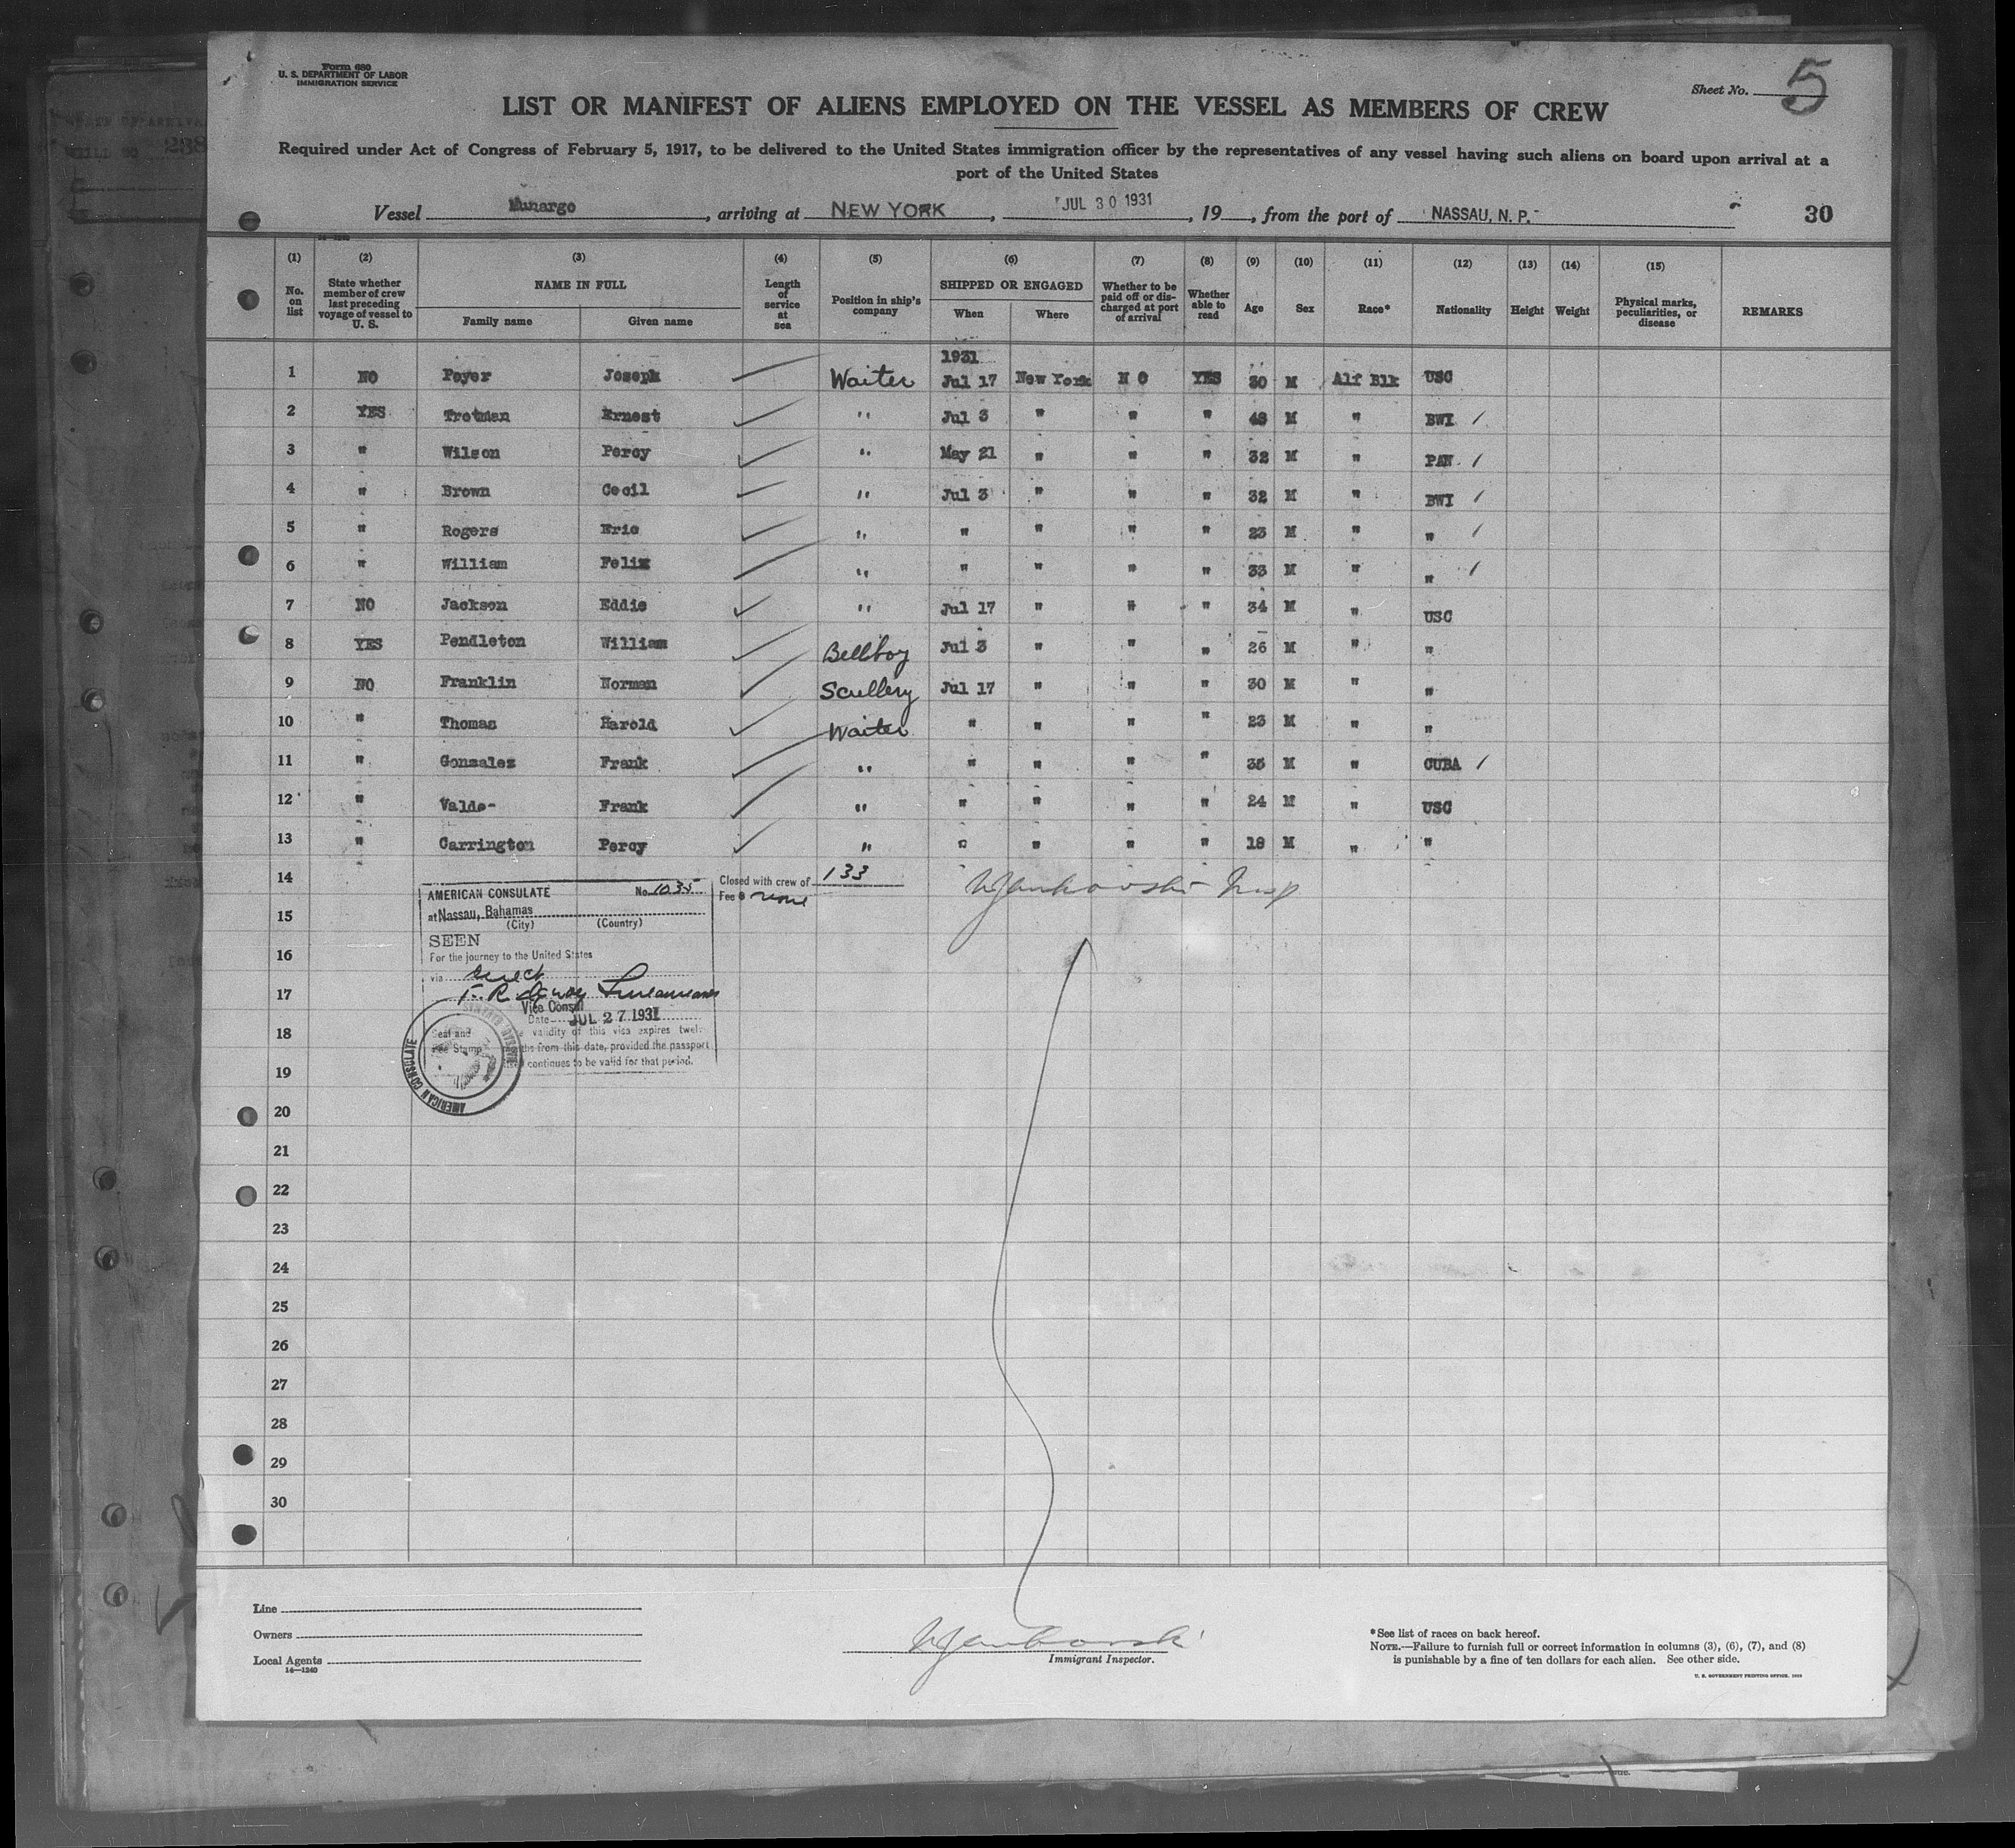 Form 680
U. S. DEPARTMENT OF LABOR
IMMIGRATION SERVICE
Sheet No. 5
LIST OR MANIFEST OF ALIENS EMPLOYED ON THE VESSEL AS MEMBERS OF CREW
Required under Act of Congress of February 5, 1917, to be delivered to the United States immigration officer by the representatives of any vessel having such aliens on board upon arrival at a
port of the United States
Vessel Munargo, arriving at NEW YORK, JUL 30 1931, 19 , from the port of NASSAU, N. P. 30
(1) No. on list (2) State whether member of crew last preceding voyage of vessel to U. S. (3) NAME IN FULL Family name Given name (4) Length of service at sea (5) Position in ship's company (6) SHIPPED OR ENGAGED When Where (7) Whether to be paid off or discharged at port of arrival (8) Whether able to read (9) Age (10) Sex (11) Race* (12) Nationality (13) Height (14) Weight (15) Physical marks, peculiarities, or disease REMARKS
1931
1 NO Poyer Joseph Waiter Jul 17 New York N O YES 30 M Alf Blk USC
2 YES Trotman Ernest " Jul 3 " " " 48 M " BWI /
3 " Wilson Percy " May 21 " " " 32 M " PAN /
4 " Brown Cecil " Jul 3 " " " 32 M " BWI /
5 " Rogers Eric " " " " " 23 M " " /
6 " William Felix " " " " " 33 M " " /
7 NO Jackson Eddie " Jul 17 " " " 34 M " USC
8 YES Pendleton William Bellboy Jul 3 " " " 26 M " "
9 NO Franklin Norman Scullery Jul 17 " " " 30 M " "
10 " Thomas Harold Waiter " " " " 23 M " "
11 " Gonzales Frank " " " " " 35 M " CUBA /
12 " Valde- Frank " " " " " 24 M " USC
13 " Carrington Percy " " " " " 18 M " "
14
15
16
17
18
19
20
21
22
23
24
25
26
27
28
29
30
AMERICAN CONSULATE No. 1035
at Nassau, Bahamas
(City) (Country)
SEEN
For the journey to the United States
via direct
Vice Consul
Date JUL 27 1931
Seal and
Fee Stamp
validity of this visa expires twel-
ths from this date, provided the passport
continues to be valid for that period.
AMERICAN CONSULATE
Closed with crew of 133
Fee $ none
Line
Owners
Local Agents
14—1240
Immigrant Inspector.
*See list of races on back hereof.
NOTE.—Failure to furnish full or correct information in columns (3), (6), (7), and (8)
is punishable by a fine of ten dollars for each alien. See other side.
U. S. GOVERNMENT PRINTING OFFICE. 1929